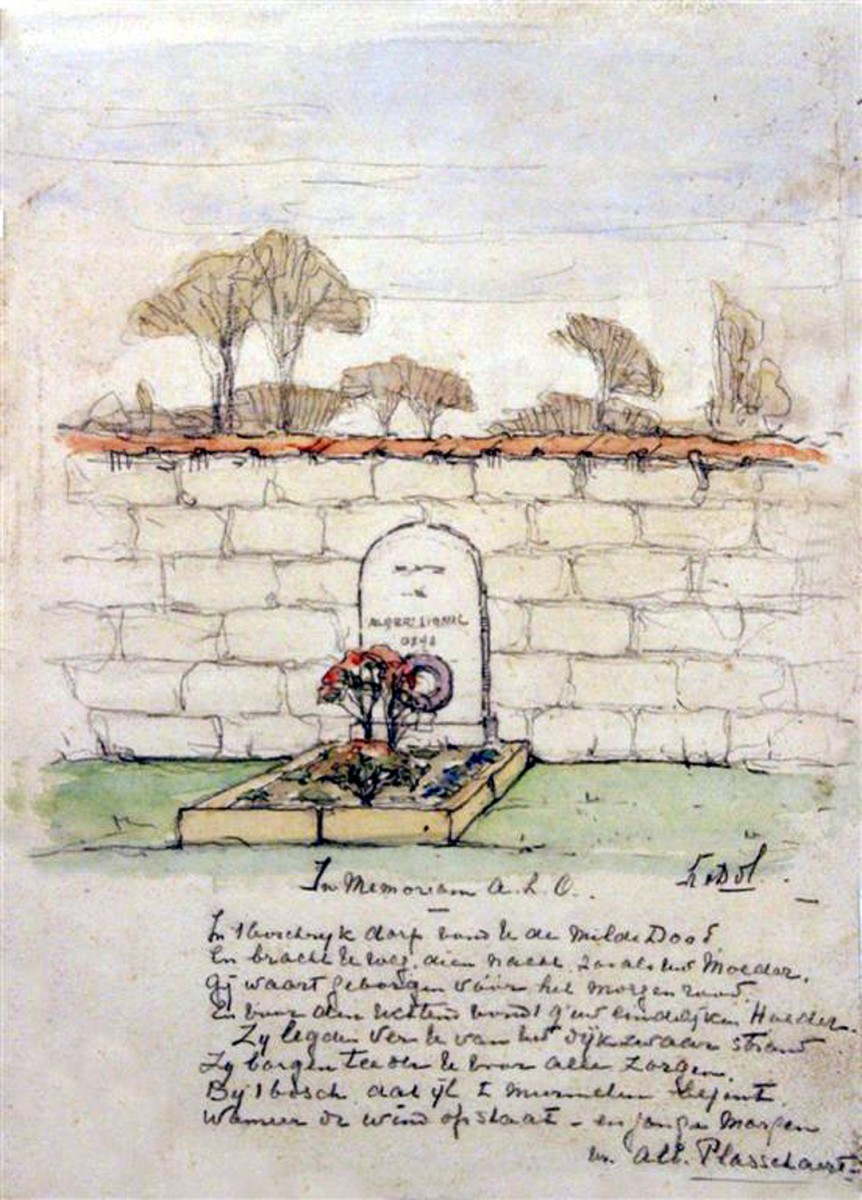 In Memoriam A. L. O..
In 't boschryk dorp vond U de milde Dood
En bracht U weg, dien nacht, zooals uw Moeder.
Gij waart geborgen vóór het morgenrood,
En voor den uchtend vondt g'uw eindelijken Hoeder.
Zy legden ver U van uw dijkzwaar strand
Zy borgen teeder U voor alle zorgen.
By 't bosch, dat ijl te murmelen begint
Wanneer de wind opstaat - en jonge Morgen
Alb. Plasschaert